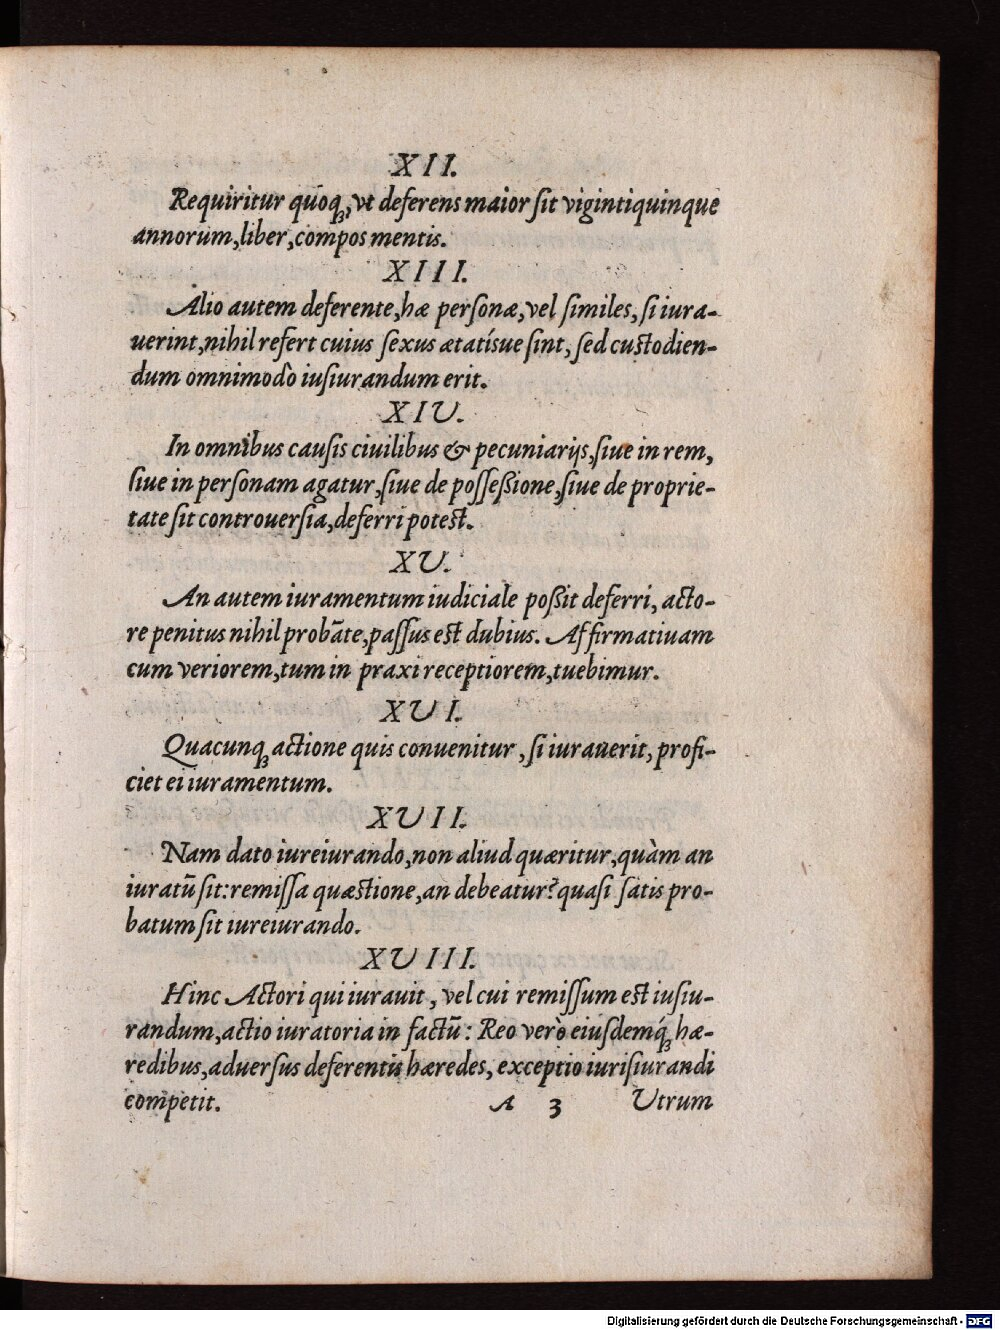 XII.
Requiritur quoq;, vt deferens maior sit vigintiquinque
annorum, liber, compos mentis.
XIII.
Alio autem deferente, hæ personæ, vel similes, si iura-
uerint, nihil refert cuius sexus ætatísue sint, sed custodien-
dum omnimodò iusiurandum erit.
XIV.
In omnibus causis ciuilibus & pecuniarijs, siue in rem,
siue in personam agatur, siue de possessione, siue de proprie-
tate sit controuersia, deferri potest.
XV.
An autem iuramentum iudiciale possit deferri, acto-
re penitus nihil probāte, passus est dubius. Affirmatiuam
cum veriorem, tum in praxi receptiorem, tuebimur.
XVI.
Quacunq; actione quis conuenitur, si iurauerit, profi-
ciet ei iuramentum.
XVII.
Nam dato iureiurando, non aliud quæritur, quàm an
iuratū sit: remissa quæstione, an debeatur? quasi satis pro-
batum sit iureiurando.
XVIII.
Hinc Actori qui iurauit, vel cui remissum est iusiu-
randum, actio iuratoria in factū: Reo verò eiusdemq́; hæ-
redibus, aduersus deferentis hæredes, exceptio iurisiurandi
competit. A 3 Utrum
Digitalisierung gefördert durch die Deutsche Forschungsgemeinschaft - DFG